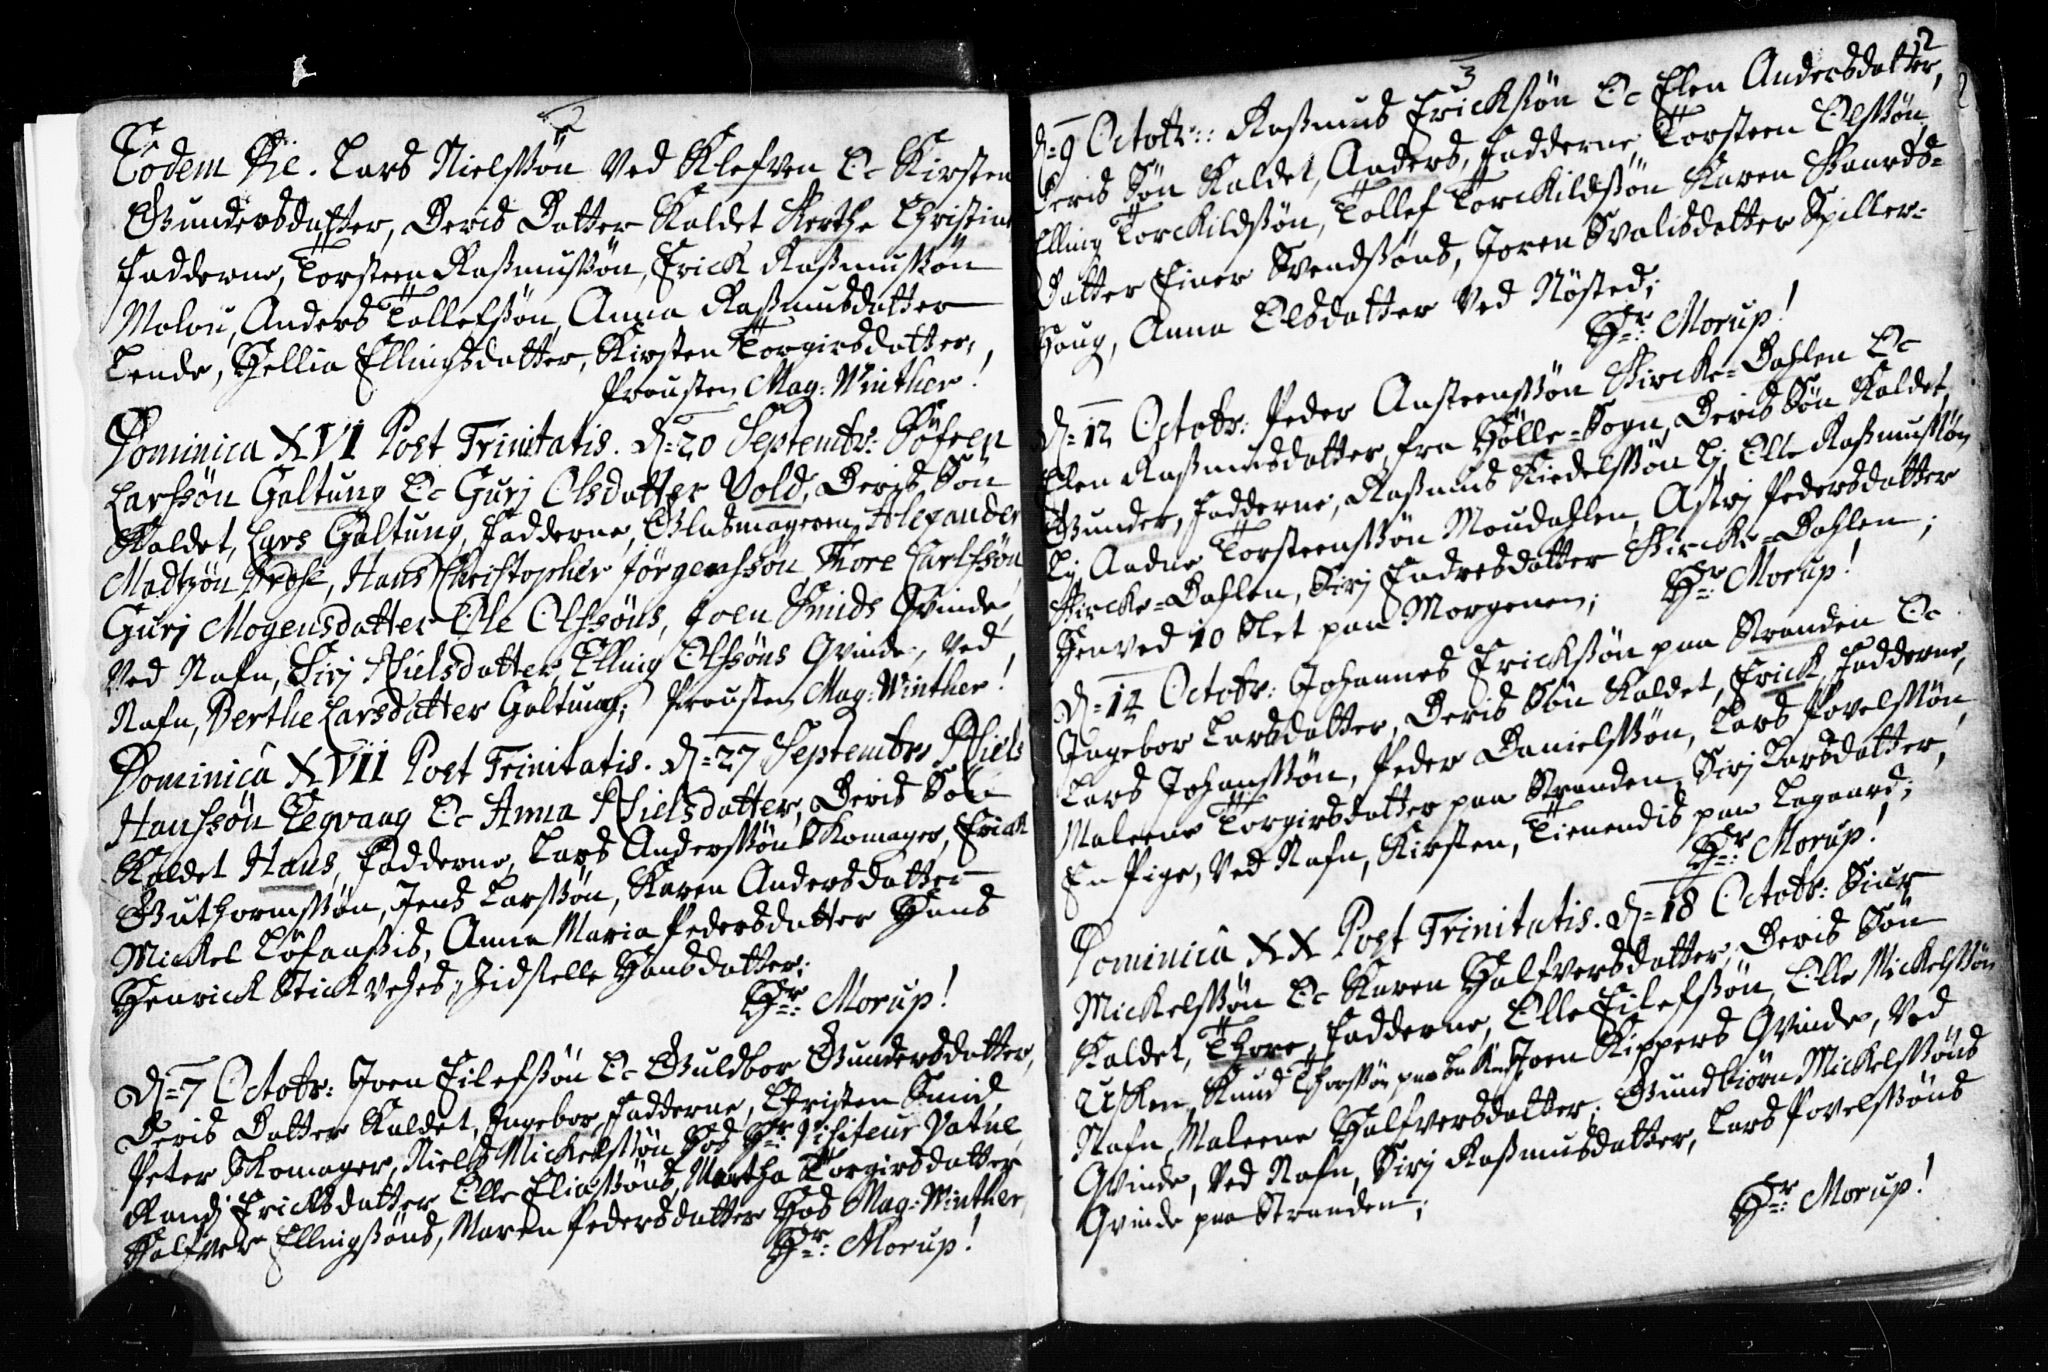 2
Eodem Die. Lars Nielssøn Ved Klefven Oc Kirsten
Gundersdatter, Deris Datter Kaldet Berthe Christine
Fadderne, Torsteen Rasmussøn, Erick Rasmussøn
Molou, Anders Tollefsøn, Anna Rasmusdatter
Lende, Hellia Ellingsdatter, Kirsten Torgirsdatter,
Prousten Mag: Winther!
Dominica XVI Post Trinitatis. D=20 Septembr: Søfren
Larssøn Galtung Oc Gurj Olsdatter Vold, Deris Søn
Kaldet, Lars Galtung, Fadderne, Glasmageren, Alexander
Madtzøn Brose, Hans Christopher Jørgensøn Tore Carlssøn,
Gurj Mogensdatter Ole Olssøns, Joen Smids Qvinde,
Ved Nafn, Sirj Nielsdatter, Elling Olssøns Qvinde, Ved
Nafn, Berthe Larsdatter Galtung; Prousten Mag: Winther!
Dominica XVII Post Trinitatis. D=27 Septembr: Niels
Hanssøn Tegvaag Oc Anna Nielsdatter, Deris Søn
Kaldet Hans, Fadderne, Lars Anderssøn Skomager, Erick
Guthormssøn, Jens Larssøn, Karen Andersdatter
Mickel Løfaassis, Anna Maria Pedersdatter Hans
Henrick Stickvehes, Zidselle Hansdatter;
Hr: Morup!
D=7 Octobr: Joen Eilefssøn Oc Guldbor Gundersdatter,
Deris Datter Kaldet, Ingebor, Fadderne, Christen Smid
Peter Skomager, Niels Mickelssøn Hos Hr Visiteur Vatne
Randj Ericksdatter Olle Eliassøns, Martha Torgirsdatter
Halfver Ellingssøns, Maren Pedersdatter Hos Mag: Winther,
Hr: Morup!
3
2
D=9 Octobr:: Rasmus Erickssøn Oc Elen Andersdatter,
Deris Søn Kaldet, Anders, Fadderne, Torsteen Olssøn,
Elling Torckildssøn, Tollef Torckildssøn Karen Skaards-
Datter Einer Svendssøns, Joren Svalisdatter Spiller-
Houg, Anna Olsdatter Ved Nøsted;
Hr: Morup!
D=12 Octobr: Peder Austeenssøn Kircke=Dahlen Oc
Elen Rasmusdatter, fra Hølle=Sogn, Deris Søn Kaldet,
Gunder, Fadderne, Rasmus Kiedelssøn Lj, Olle Rasmussøn
Lj Aadne Torsteenssøn Moudahlen, Astrj Pedersdatter
Kircke=Dahlen, Sirj Endresdatter Kircke=Dahlen;
Henved 10 Slet paa Morgenen; Hr: Morup!
D=14 Octobr: Johannes Erickssøn paa Stranden Oc
Ingebor Larsdatter, Deris Søn Kaldet, Erick, Fadderne,
Lars Johanssøn, Peder Danielssøn, Lars Povelssøn,
Maleene Torgirsdatter paa Stranden, Sirj Larsdatter,
En Pige, Ved Nafn, Kirsten, Tienendis paa Lagaard;
Hr: Morup!
Dominica XX Post Trinitatis. D=18 Octobr: Siur
Mickelssøn Oc Karen Halfversdatter, Deris Søn
Kaldet, Thore, Fadderne, Olle Eilefssøn, Olle Mickelssøn
Usken, Knud Thorssøn paa Joen Skippers Qvinde, Ved
Nafn, Maleene Halfversdatter, Gundbiørn Mickelssøns
Qvinde, Ved Nafn, Sirj Rasmusdatter, Lars Povelssøns
Qvinde paa Stranden;
Hr: Morup!